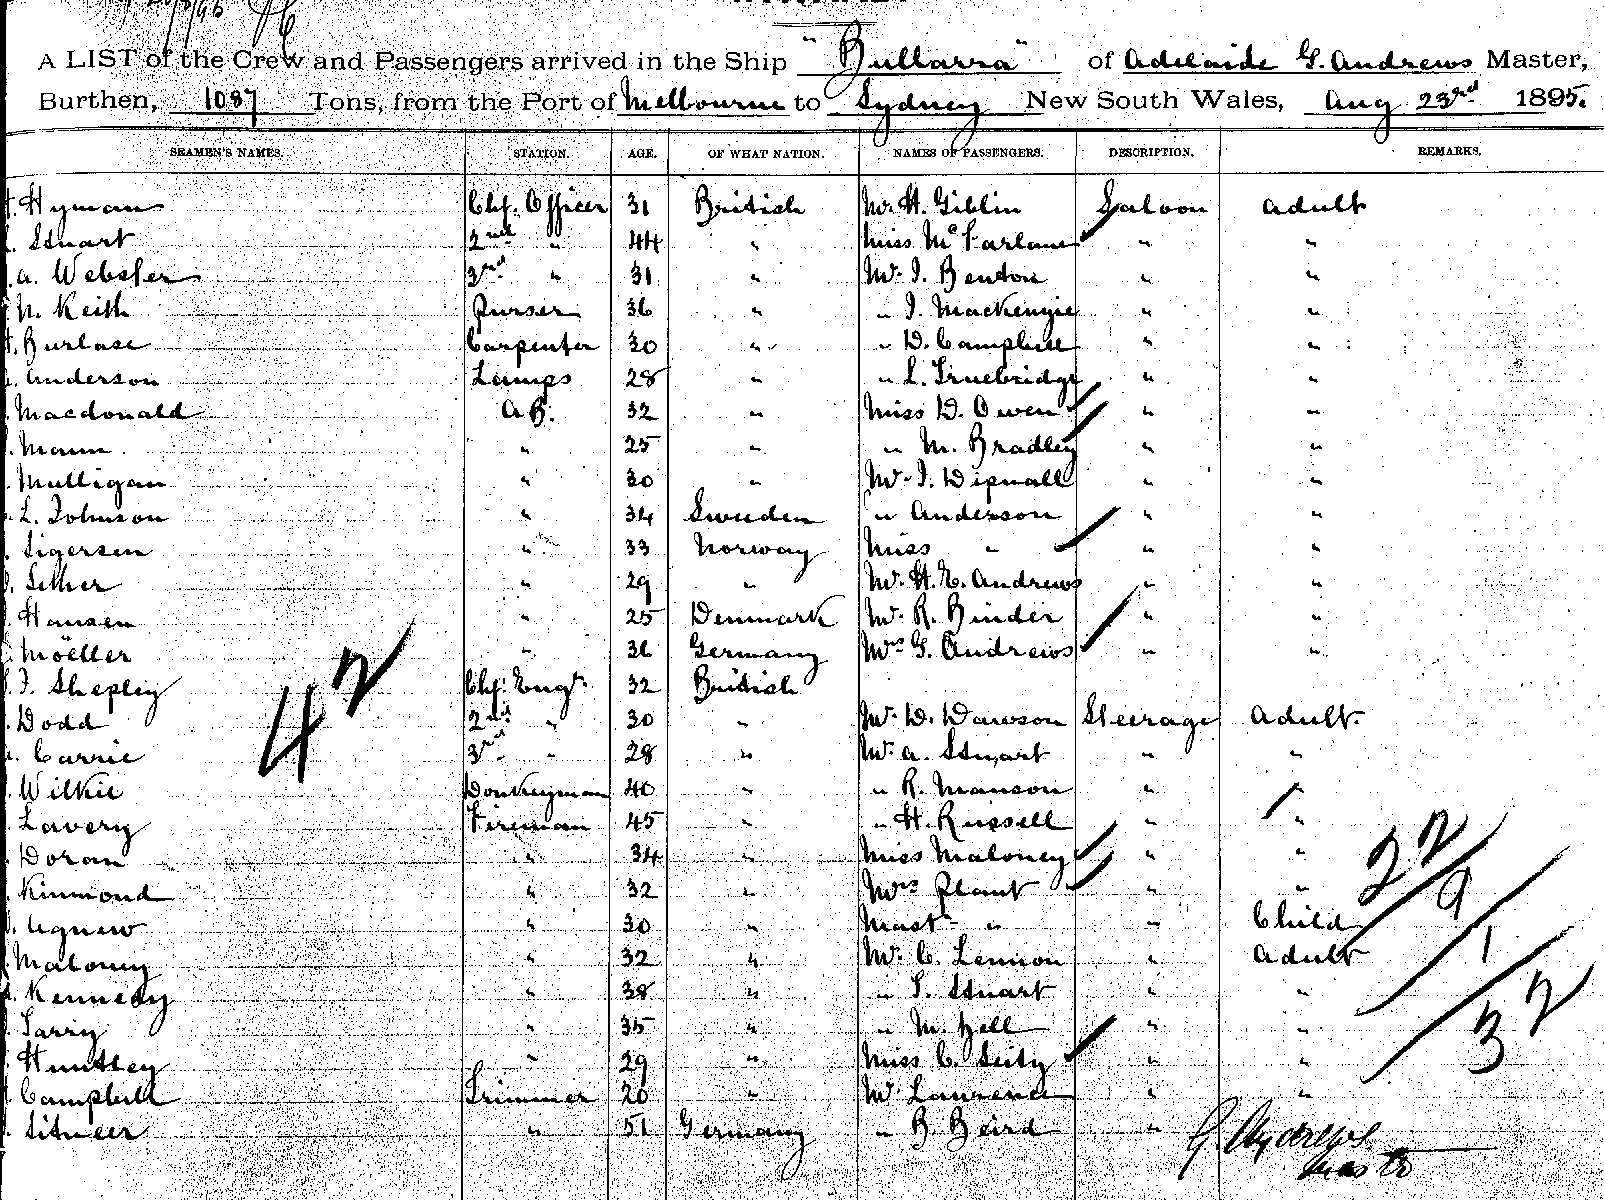 A LIST of the Crew and Passengers arrived in the Ship "Bullarra" of Adelaide G. Andrews Master,
Burthen, 1087 Tons, from the Port of Melbourne to Sydney New South Wales, Aug 23rd 1895.
SEAMEN'S NAMES. STATION. AGE. OF WHAT NATION. NAMES OF PASSENGERS. DESCRIPTION. REMARKS.
Hyman Chf. Officer 31 British Mr. H. Giblin Saloon Adult
Stuart 2nd " 44 " Miss McFarlane " "
A. Webster 3rd " 31 " Mr. J. Benton " "
N. Keith Purser 36 " " J. Mackenzie " "
Burlase Carpenter 30 " " D. Campbell " "
Anderson Lamps 28 " " L. Truebridge " "
Macdonald A.B. 32 " Miss D. Owen " "
Mann " 25 " " M. Bradley " "
Mulligan " 30 " Mr. J. Dipnall " "
L. Johnson " 34 Sweden " Anderson " "
Sigersen " 33 Norway Miss " " "
" 29 " Mr. H. E. Andrews " "
Hansen " 25 Denmark Mr. R. Binder " "
Möeller " 36 Germany Mrs G. Andrews " "
J. Shepley Chf. Engr. 32 British
Dodd 2nd " 30 " Mr. D. Dawson Steerage Adult.
Carrie 3rd " 28 " Mr. A. Stuart " "
Wilkie Donkeyman 40 " " R. Manson " "
Lavery Fireman 45 " " H. Russell " "
Doran " 34 " Miss Maloney " "
Kinmond " 32 " Mrs Plant " "
Agnew " 30 " Mast " " Child
Maloney " 32 " Mr. C. Lennon " Adult
Kennedy " 38 " " S. Stuart " "
Tarry " 35 " " M. Hell " "
Huntley " 29 " Miss C. " "
Campbell Trimmer 20 " Mr Lawrence " "
" 51 Germany " B Beird "
42
22
9
1
32
G. Andrews
Master